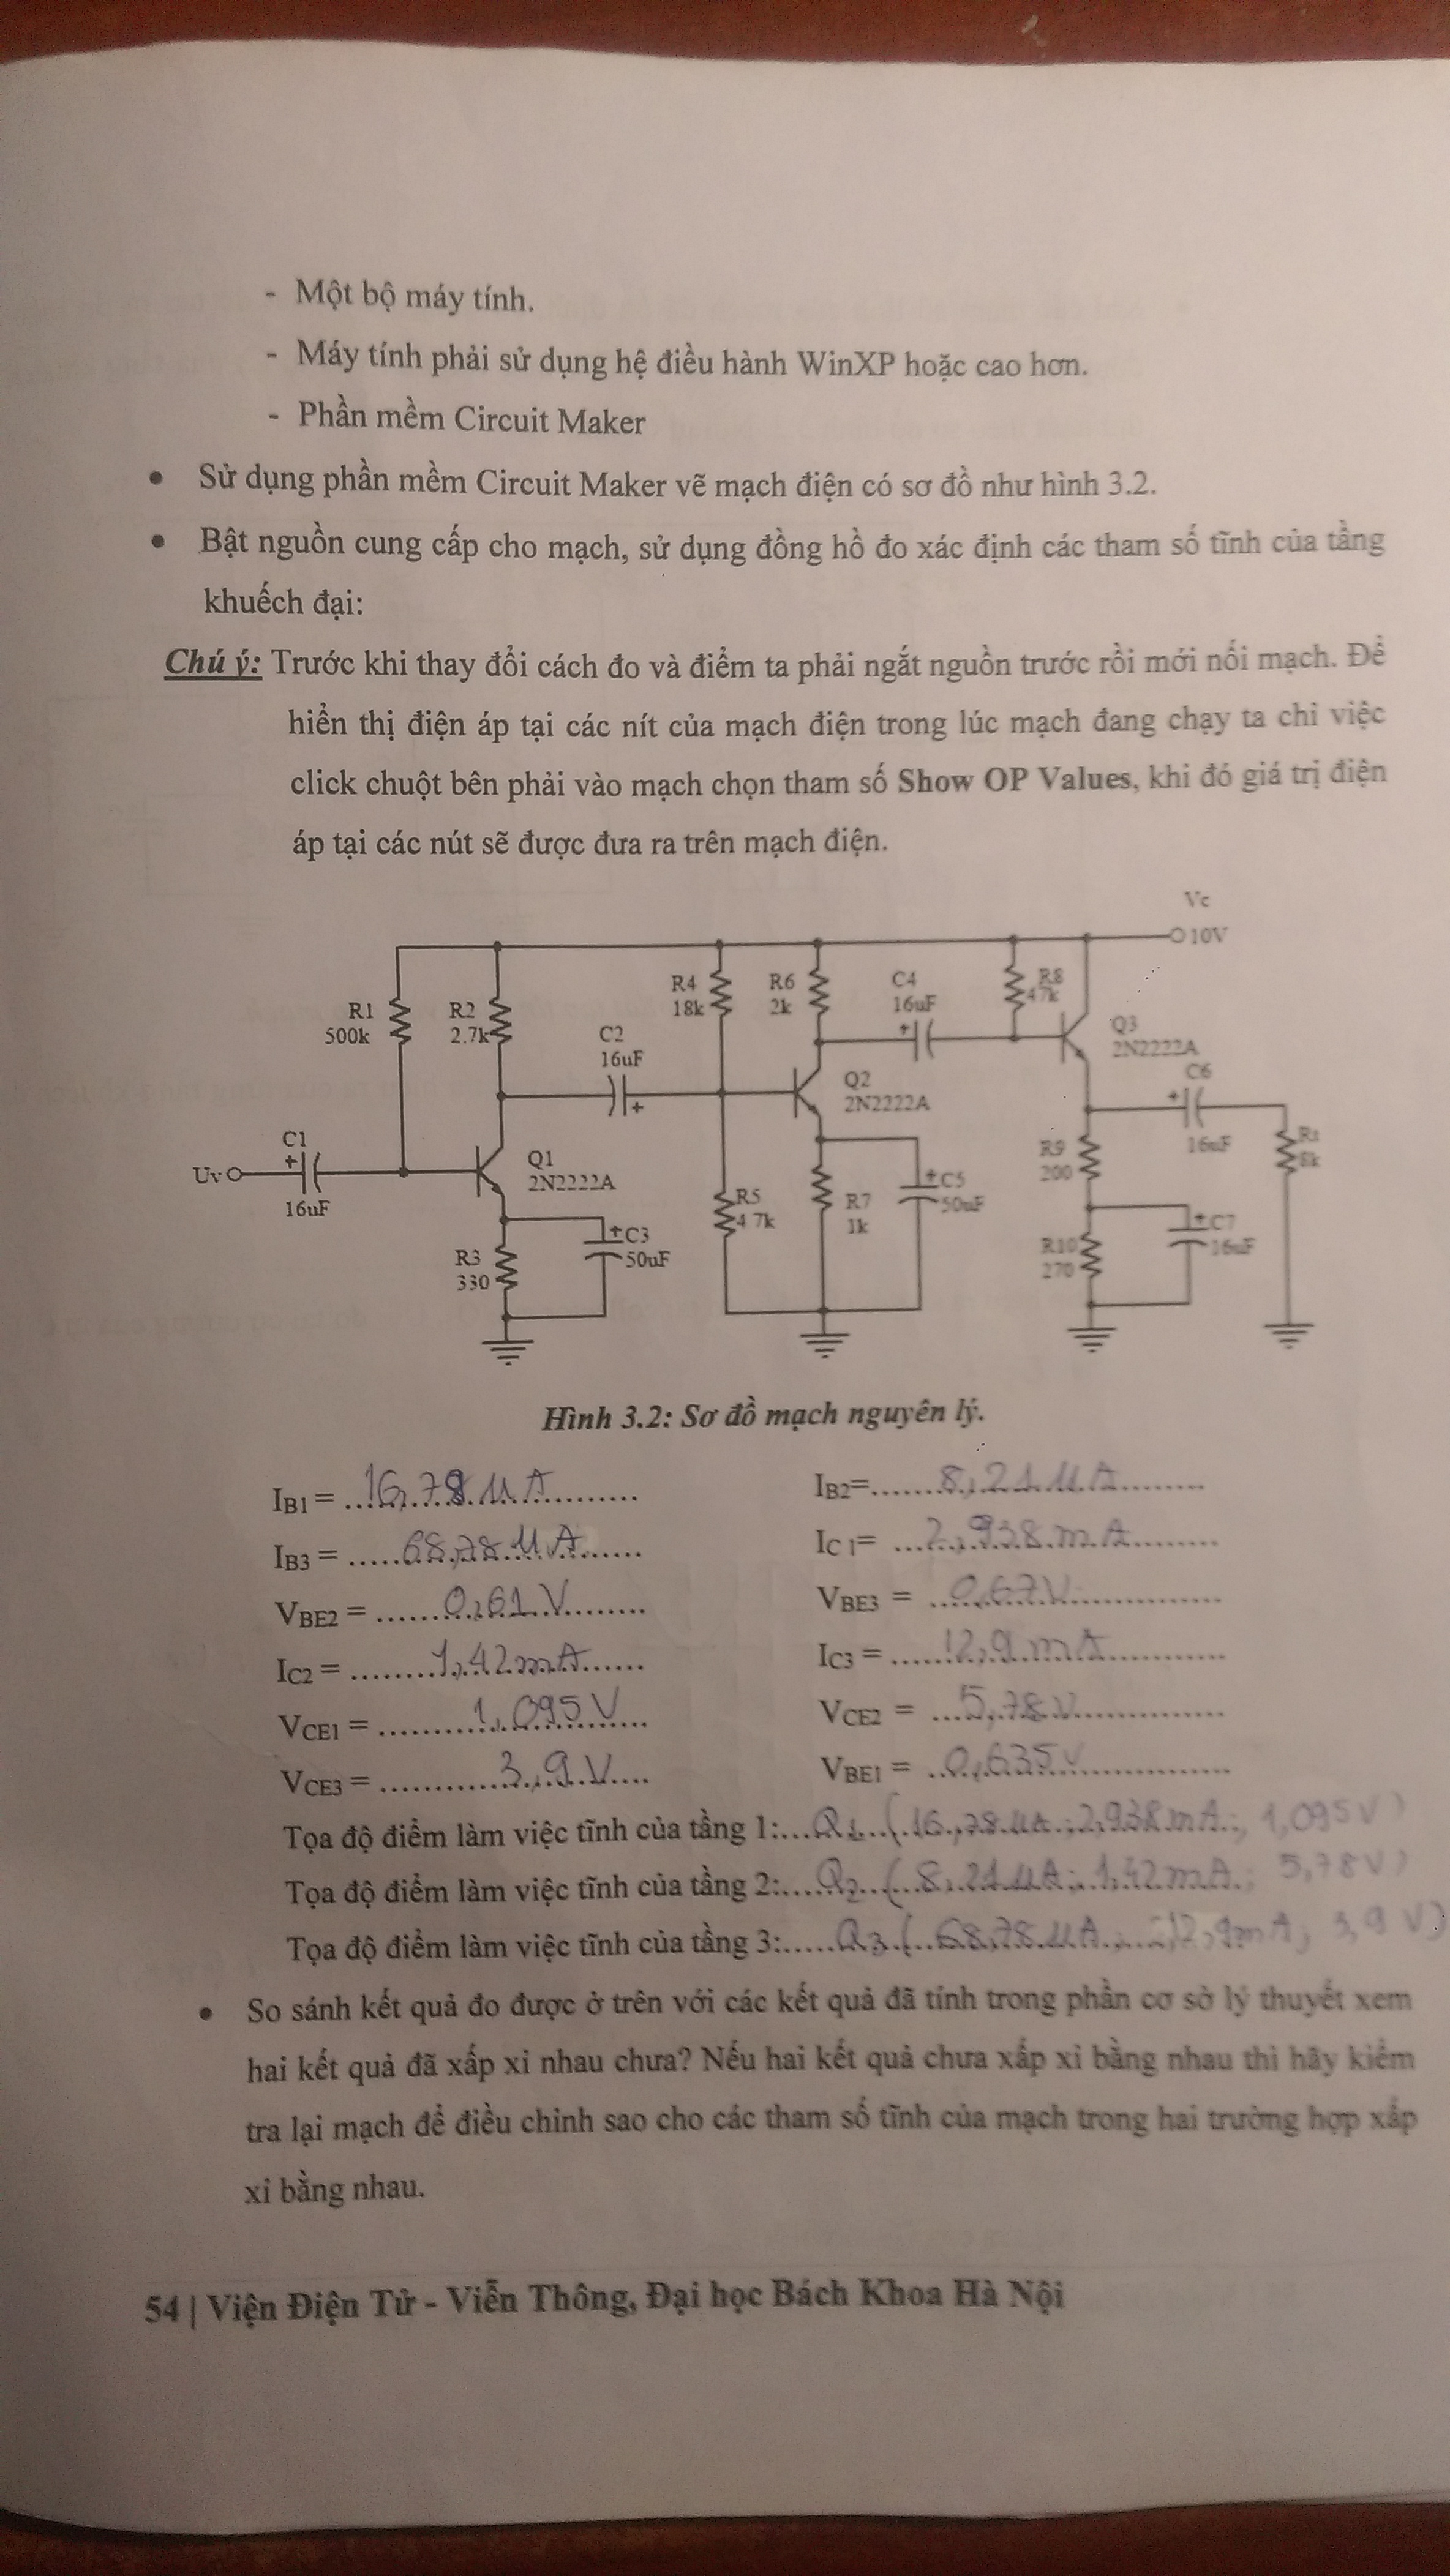 - Một bộ máy tính.
- Máy tính phải sử dụng hệ điều hành WinXP hoặc cao hơn.
- Phần mềm Circuit Maker
• Sử dụng phần mềm Circuit Maker vẽ mạch điện có sơ đồ như hình 3.2.
• Bật nguồn cung cấp cho mạch, sử dụng đồng hồ đo xác định các tham số tĩnh của tầng
khuếch đại:
Chú ý: Trước khi thay đổi cách đo và điểm ta phải ngắt nguồn trước rồi mới nối mạch. Để
hiển thị điện áp tại các nít của mạch điện trong lúc mạch đang chạy ta chỉ việc
click chuột bên phải vào mạch chọn tham số Show OP Values, khi đó giá trị điện
áp tại các nút sẽ được đưa ra trên mạch điện.
Vc
10V
R1
500k
R2
2.7k
C2
16uF
R4
18k
R6
2k
C4
16uF
R8
47k
Q3
2N2222A
Q2
2N2222A
C6
16uF
Uv
C1
16uF
Q1
2N2222A
R5
4 7k
R7
1k
C5
50uF
R9
200
R3
330
C3
50uF
R10
270
C7
16uF
Hình 3.2: Sơ đồ mạch nguyên lý.
IB1 = 16,78 µA IB2= 8,21 µA
IB3 = 68,78 µA IC 1= 2,938 mA
VBE2 = 0,61 V VBE3 = 0,67V
IC2 = 1,42 mA IC3 = 12,9 mA
VCE1 = 1,095 V VCE2 = 5,78 V
VCE3 = 3,9 V VBE1 = 0,635 V
Tọa độ điểm làm việc tĩnh của tầng 1: Q1 (16,78 µA ; 2,938 mA ; 1,095 V)
Tọa độ điểm làm việc tĩnh của tầng 2: Q2 (8,21 µA ; 1,42 mA ; 5,78 V)
Tọa độ điểm làm việc tĩnh của tầng 3: Q3 (68,78 µA ; 12,9 mA ; 3,9 V)
• So sánh kết quả đo được ở trên với các kết quả đã tính trong phần cơ sở lý thuyết xem
hai kết quả đã xấp xỉ nhau chưa? Nếu hai kết quả chưa xấp xỉ bằng nhau thì hãy kiểm
tra lại mạch để điều chỉnh sao cho các tham số tĩnh của mạch trong hai trường hợp xấp
xỉ bằng nhau.
54 | Viện Điện Tử - Viễn Thông, Đại học Bách Khoa Hà Nội